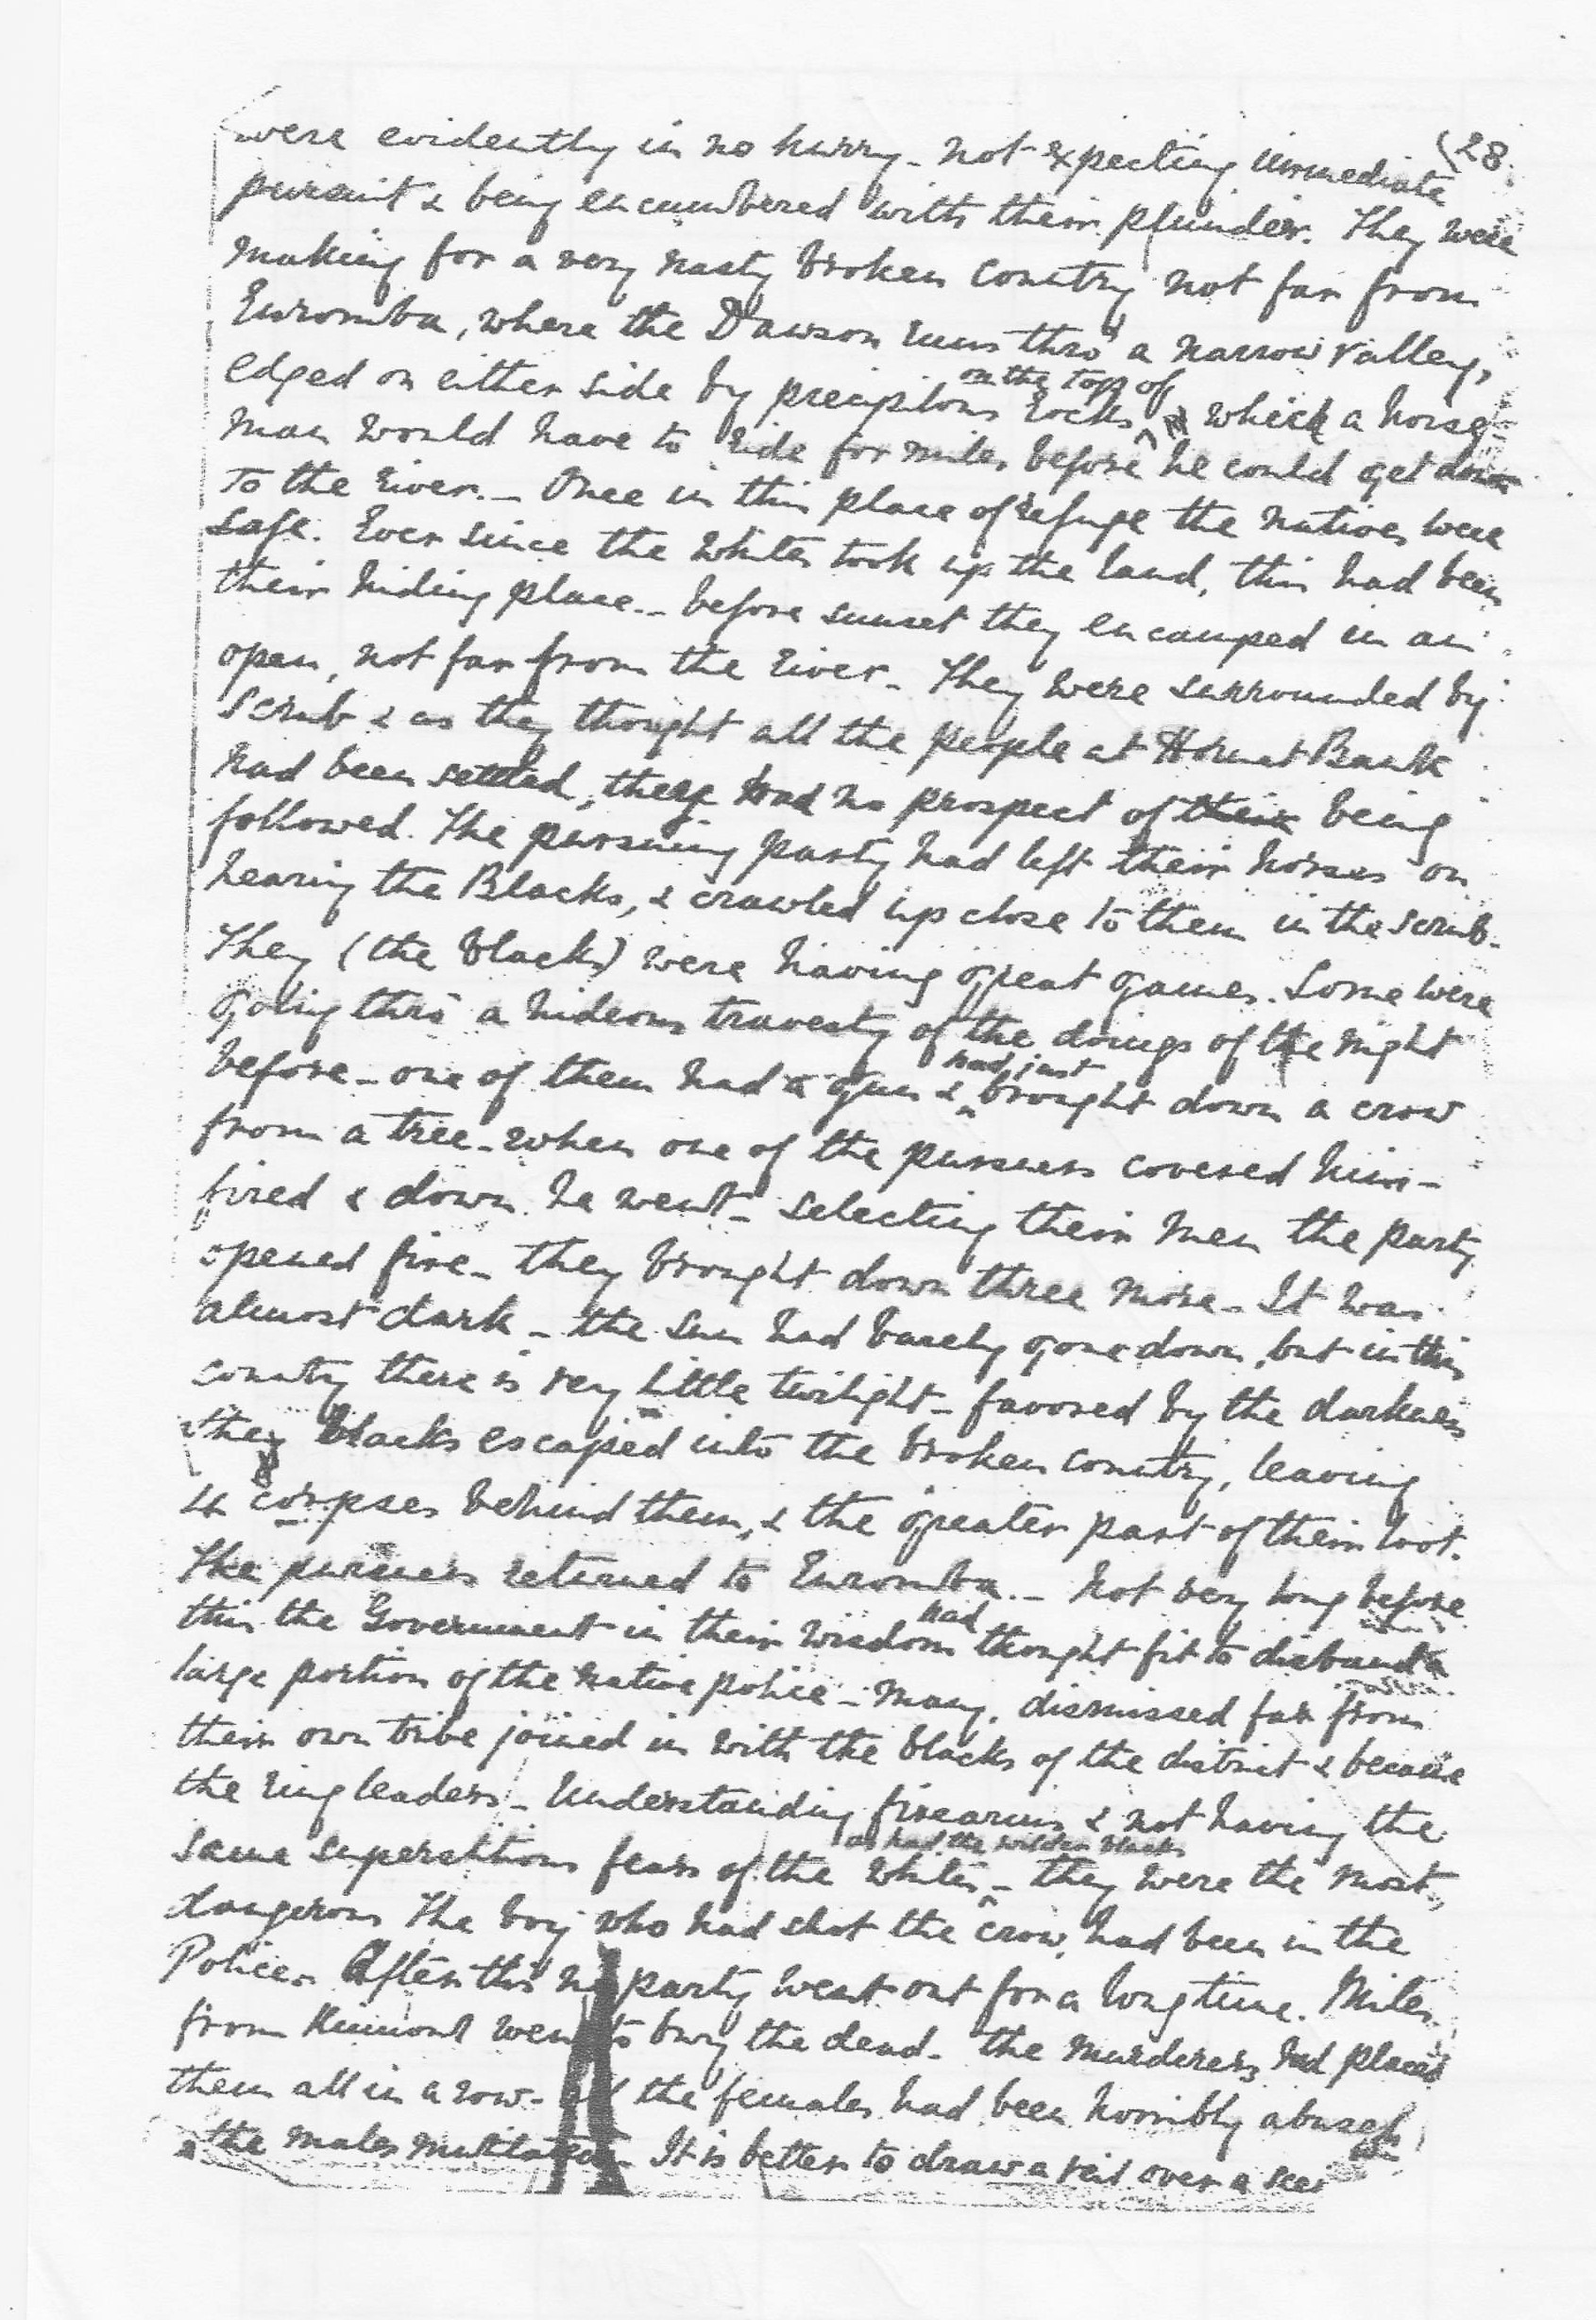 (28.
were evidently in no hurry - not expecting immediate
pursuit & being encumbered with their plunder. They were
making for a very nasty broken country not far from
Euromba, where the Dawson runs thro' a narrow valley,
edged on either side by precipitous rocks on the top of which a horse-
man would have to ride for miles before he could get down
to the river. - Once in this place of refuge the natives were
safe. Ever since the whites took up the land, this had been
their hiding place. - before sunset they encamped in an
open, not far from the river - They were surrounded by
scrub & as they thought all the people at Hornet Bank
had been settled, they had no prospect of their being
followed. The pursuing party had left their horses on
hearing the Blacks, & crawled up close to them in the scrub -
They (the blacks) were having great games. Some were
going thro' a hideous travesty of the doings of the night
before - one of them had a gun & had just brought down a crow
from a tree - when one of the pursuers covered him -
fired & down he went - selecting their men the party
opened fire - they brought down three more - It was
almost dark - the sun had barely gone down, but in this
county there is very little twilight - favored by the darkness
they blacks escaped into the broken country, leaving
4 corpses behind them, & the greater part of their loot.
The pursuers returned to Euromba. - Not very long before
this the Government in their wisdom had thought fit to disband a
large portion of the native police - Many, dismissed far from
their own tribe joined in with the blacks of the district & became
the ringleaders - Understanding firearms & not having the
same superstitious fears of the whites as had the wilder blacks - they were the most
dangerous The boy who had shot the crow, had been in the
Police - After this no party went out for a long time. Miles
from Kinnoul went to bury the dead - the murderers had placed
them all in a row - all the females had been horribly abused
& the males mutilated - It is better to draw a veil over a